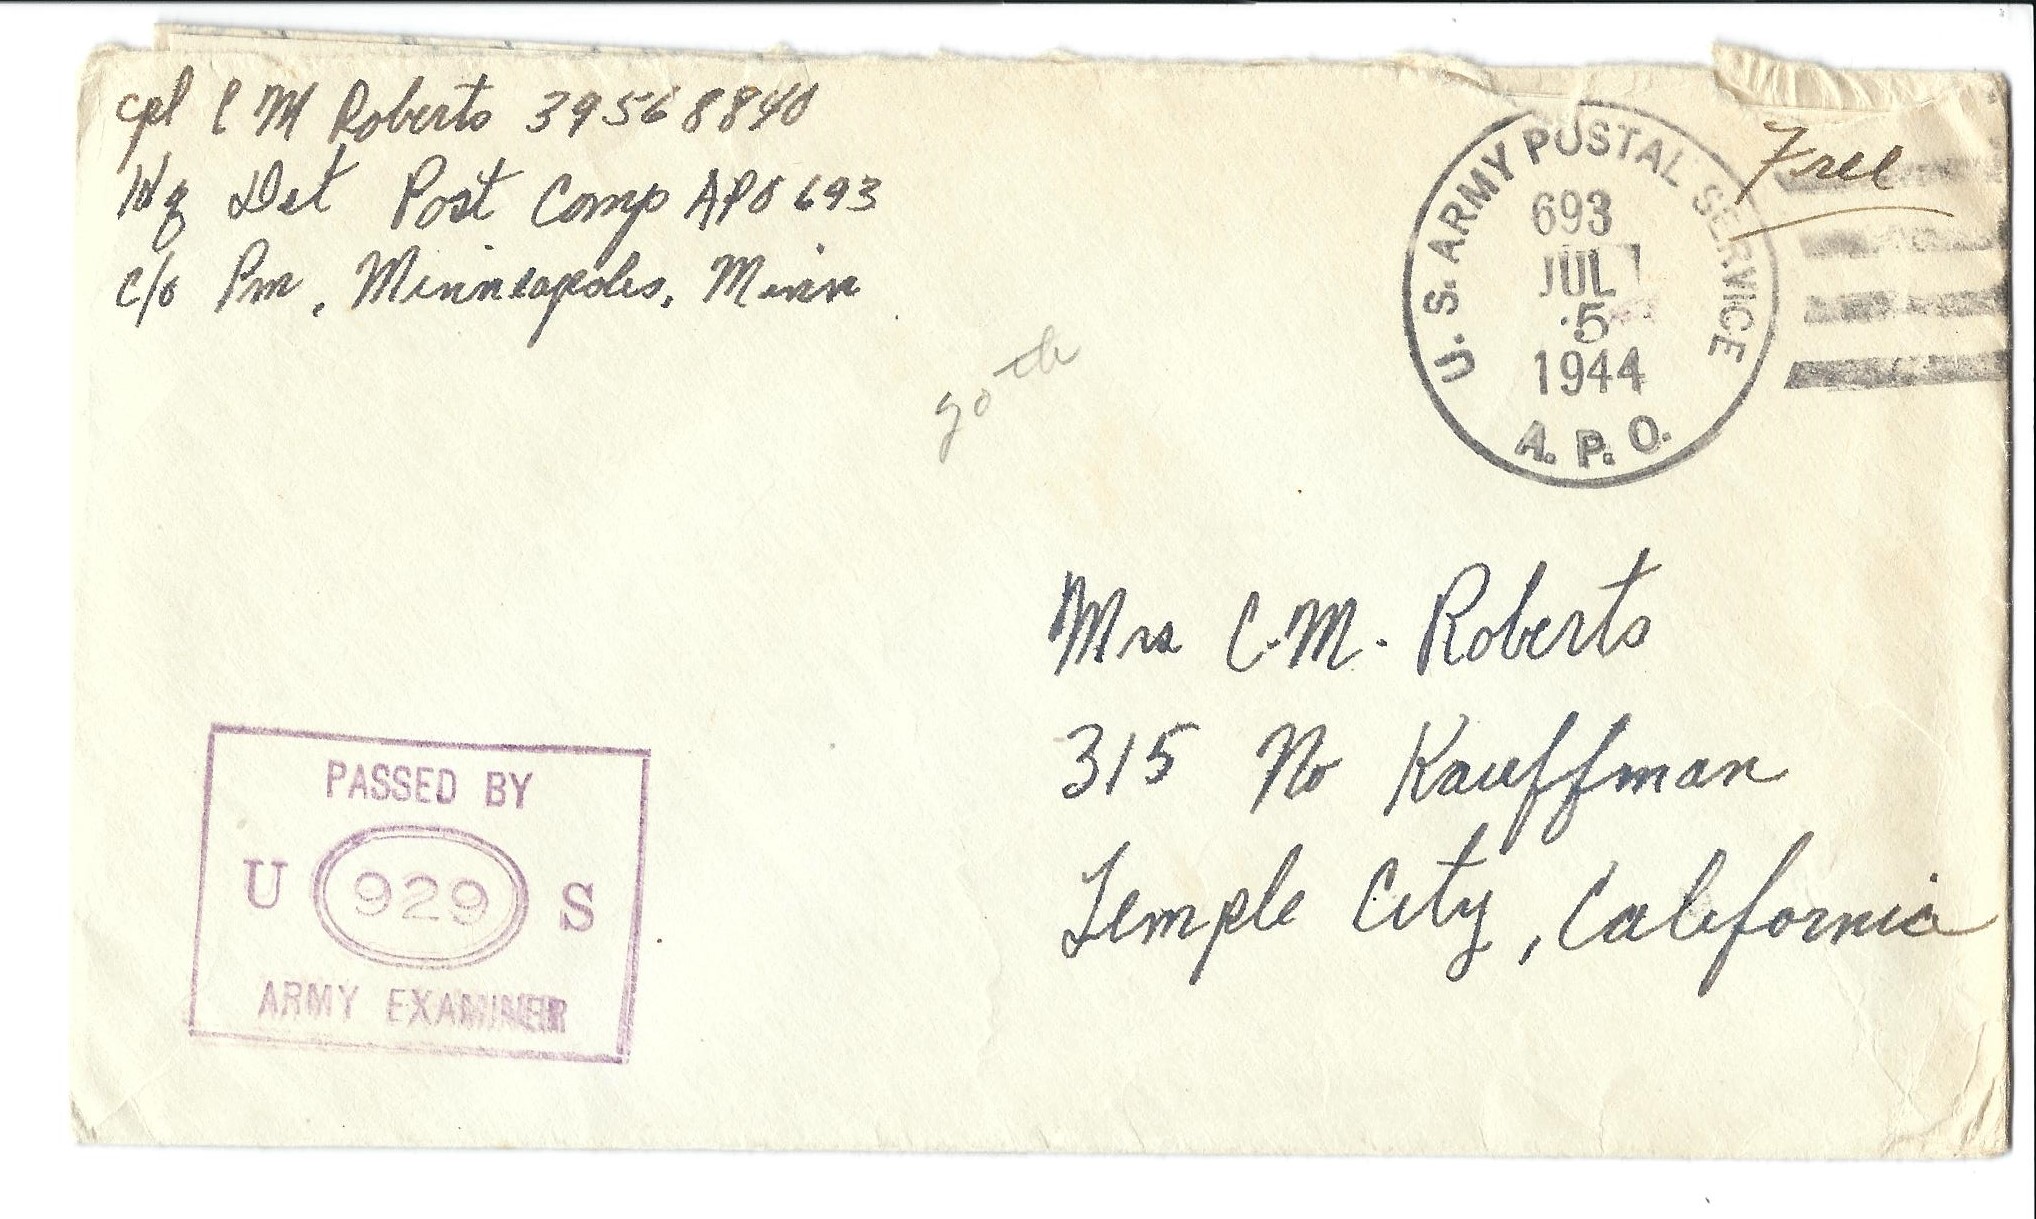 Cpl C M Roberts 39568840
Hq Det Post Comp APO 693
c/o Pm, Minneapolis, Minn
Free
U. S. ARMY POSTAL SERVICE
693
JUL
5
1944
A. P. O.
Mrs C. M. Roberts
315 No Kauffman
Temple City, California
PASSED BY
U 929 S
ARMY EXAMINER